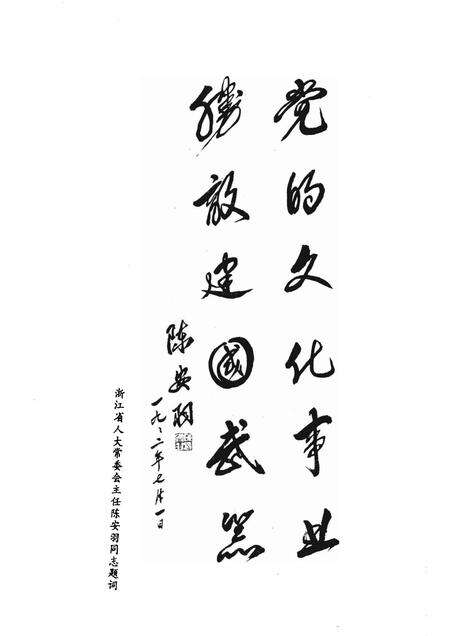 党的文化事业
勝敌建國武器
陈安羽
一九九二年七月一日
浙江省人大常委会主任陈安羽同志题词